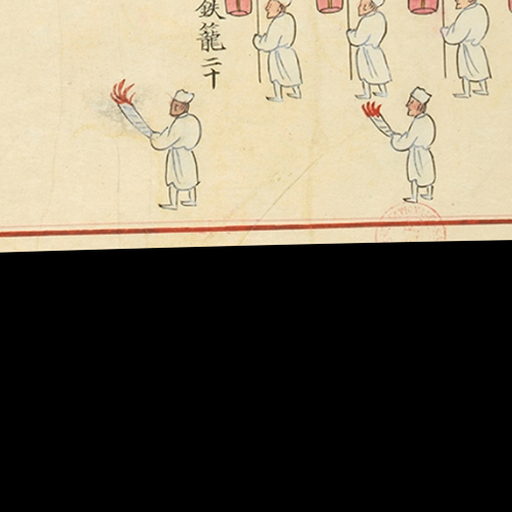 鉄籠二十